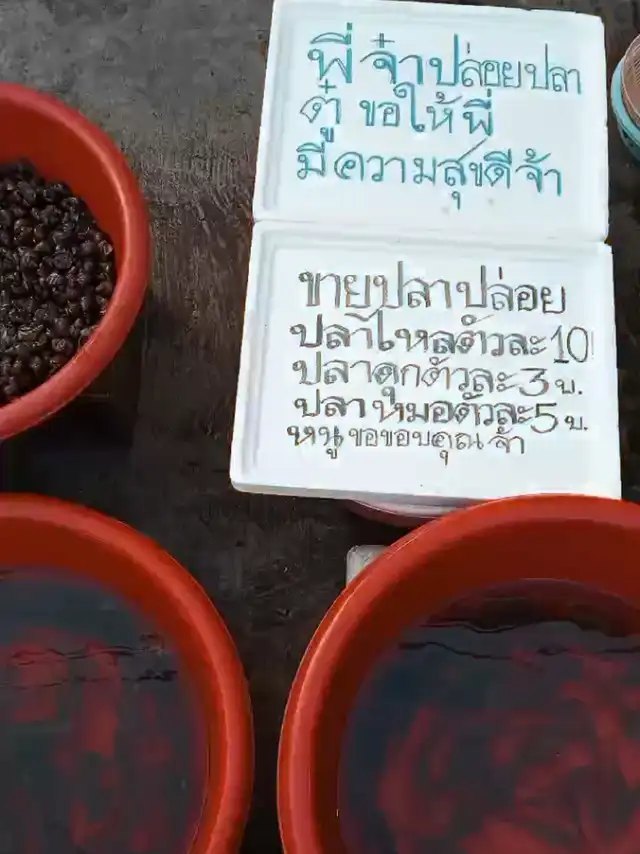 พี่จ๋าปล่อยปลา
ตู่ ขอให้พี่
มีความสุขดีจ้า
ขายปลาปล่อย
ปลาไหลตัวละ10
ปลาดุกตัวละ3บ.
ปลาหมอตัวละ5บ.
หนูขอขอบคุณจ้า